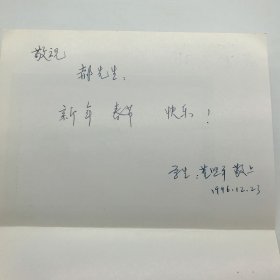 敬祝
郝先生:
新年 春节 快乐!
学生: 敬上
1996.12.23